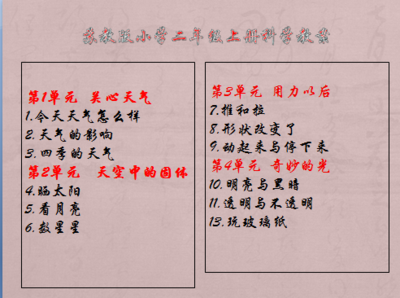 苏教版小学二年级上册科学教案
第1单元 关心天气
1.今天天气怎么样
2.天气的影响
3.四季的天气
第2单元 天空中的固体
4.晒太阳
5.看月亮
6.数星星
第3单元 用力以后
7.推和拉
8.形状改变了
9.动起来与停下来
第4单元 奇妙的光
10.明亮与黑暗
11.透明与不透明
13.玩玻璃纸